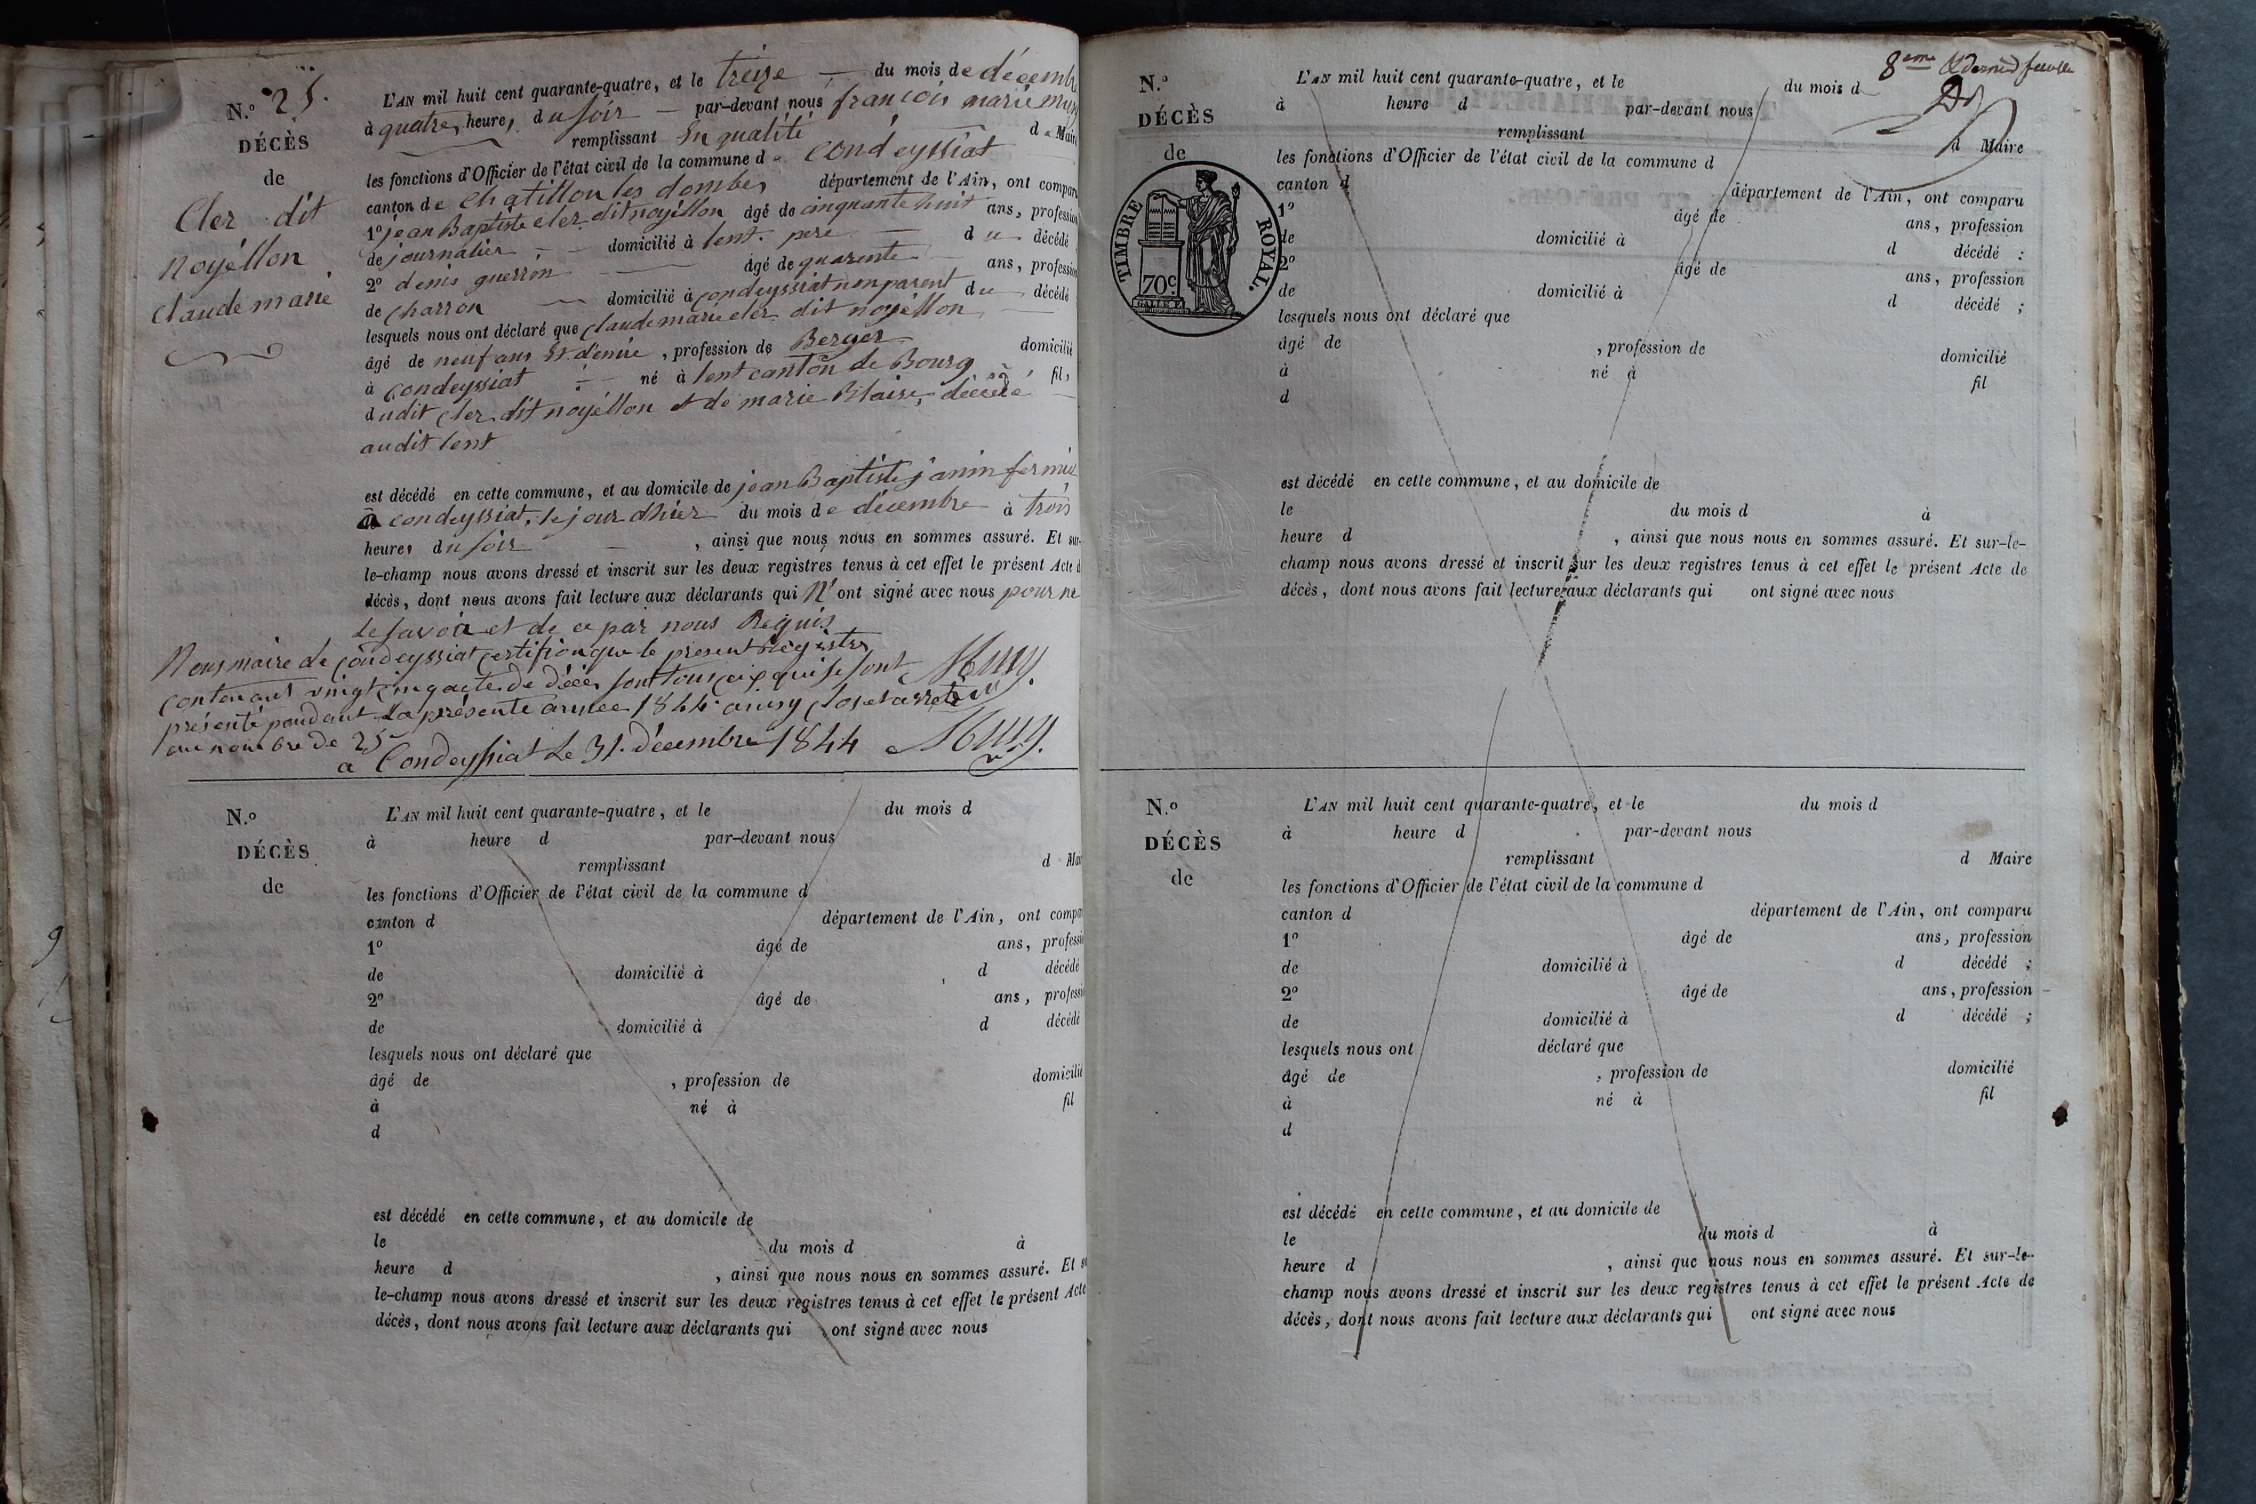 N.º 25.
DÉCÈS
de
Cler dit
Noyéllon
Claude marie
L'AN mil huit cent quarante-quatre, et le treize du mois de décembr
à quatre heures du soir par-devant nous françois marie muny
remplissant En qualité de Maire
les fonctions d'Officier de l'état civil de la commune de Condeyssiat
canton de Chatillon les dombes département de l'Ain, ont comparu
1º jean Baptiste cler dit noyéllon âgé de cinquante huit ans, profession
de journalier domicilié à lent. pere du décédé
2º denis guerrin âgé de quarente ans, profession
de Charron domicilié à condeyssiat non parent du décédé
lesquels nous ont déclaré que Claude marie cler dit noyéllon
âgé de neuf ans Et demie, profession de Berger domicilié
à Condeyssiat né à lent canton de Bourg fils
dudit Cler dit noyéllon et de marie Blaise, décédé
audit lent
est décédé en cette commune, et au domicile de jean Baptiste janin fermier
à condeyssiat, le jour d'hier du mois de décembre à trois
heures du soir, ainsi que nous nous en sommes assuré. Et sur-
le-champ nous avons dressé et inscrit sur les deux registres tenus à cet effet le présent Acte d
décès, dont nous avons fait lecture aux déclarants qui N' ont signé avec nous pour ne
le savoir et de ce par nous Requis
Nous maire de Condeyssiat Certifion que le present Registre
Contenant vingt cinq acte de décès sont tous ceux qui se sont
présenté pendant la présente année 1844 ainsy clos et arreté
au nombre de 25
a Condeyssiat Le 31. décembre 1844 Muny.
N.º
DÉCÈS
de
L'AN mil huit cent quarante-quatre, et le du mois d
à heure d par-devant nous
remplissant d Mai
les fonctions d'Officier de l'état civil de la commune d
canton d département de l'Ain, ont compar
1º âgé de ans, professi
de domicilié à d décédé
2º âgé de ans, professi
de domicilié à d décédé
lesquels nous ont déclaré que
âgé de , profession de domicilié
à né à fil
d
est décédé en cette commune, et au domicile de
le du mois d à
heure d , ainsi que nous nous en sommes assuré. Et s
le-champ nous avons dressé et inscrit sur les deux registres tenus à cet effet le présent Acte
décès, dont nous avons fait lecture aux déclarants qui ont signé avec nous
8eme & dernier feuille
N.º
DÉCÈS
de
TIMBRE ROYAL.
70c.
L'AN mil huit cent quarante-quatre, et le du mois d
à heure d par-devant nous
remplissant d Maire
les fonctions d'Officier de l'état civil de la commune d
canton d département de l'Ain, ont comparu
1º âgé de ans, profession
de domicilié à d décédé :
2º âgé de ans, profession
de domicilié à d décédé ;
lesquels nous ont déclaré que
âgé de , profession de domicilié
à né à fil
d
est décédé en cette commune, et au domicile de
le du mois d à
heure d , ainsi que nous nous en sommes assuré. Et sur-le-
champ nous avons dressé et inscrit sur les deux registres tenus à cet effet le présent Acte de
décès, dont nous avons fait lecture aux déclarants qui ont signé avec nous
N.º
DÉCÈS
de
L'AN mil huit cent quarante-quatre, et le du mois d
à heure d par-devant nous
remplissant d Maire
les fonctions d'Officier de l'état civil de la commune d
canton d département de l'Ain, ont comparu
1º âgé de ans, profession
de domicilié à d décédé ;
2º âgé de ans, profession
de domicilié à d décédé ;
lesquels nous ont déclaré que
âgé de , profession de domicilié
à né à fil
d
est décédé en cette commune, et au domicile de
le du mois d à
heure d , ainsi que nous nous en sommes assuré. Et sur-le-
champ nous avons dressé et inscrit sur les deux registres tenus à cet effet le présent Acte de
décès, dont nous avons fait lecture aux déclarants qui ont signé avec nous